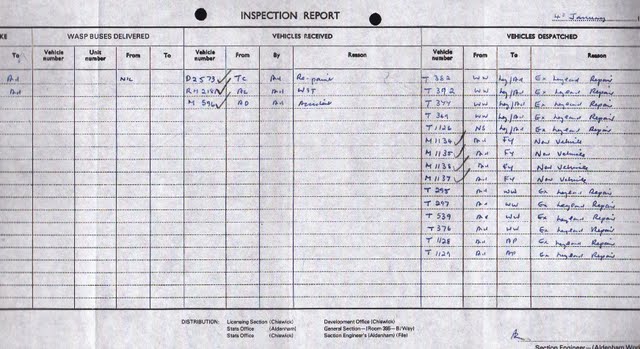 INSPECTION REPORT 4th January
KE WASP BUSES DELIVERED VEHICLES RECEIVED VEHICLES DESPATCHED
To Vehicle number Unit number From To Vehicle number From By Reason Vehicle number From To Reason
Ad NIL D2573 TC Ad Re-paint T 382 WW Ley/Ad Ex Leyland Repair
Ad RM2181 AL Ad WST T 392 WW Ley/Ad Ex Leyland Repair
M 596 AD Ad Accident T 377 WW Ley/Ad Ex Leyland Repair
T 369 WW Ley/Ad Ex Leyland Repair
T 1126 NS Ley/Ad Ex Leyland Repair
M 1134 Ad FY New Vehicle
M 1135 Ad FY New Vehicle
M 1138 Ad FY New Vehicle
M 1137 Ad FY New Vehicle
T 295 Ad WW Ex Leyland Repair
T 297 Ad WW Ex Leyland Repair
T 539 Ad WW Ex Leyland Repair
T 376 Ad WW Ex Leyland Repair
T 1128 Ad AP Ex Leyland Repair
T 1129 Ad AP Ex Leyland Repair
DISTRIBUTION: Licensing Section (Chiswick) Development Office (Chiswick)
Stats Office (Aldenham) General Section—(Room 395—B/Way)
Stats Office (Chiswick) Section Engineer's (Aldenham) (File)
Section Engineer—(Aldenham Wor